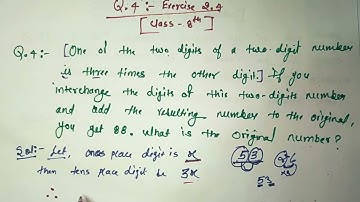 Q.4 :- Exercise 2.4
[Class - 8th]
Q.4 :- [One of the two digits of a two-digit number
is three times the other digit.] If you
interchange the digits of this two-digits number
and add the resulting number to the original,
you get 88. what is the original number?
Sol:- Let, ones place digit is x
then tens place digit be 3x
∴
53
26
x3
53